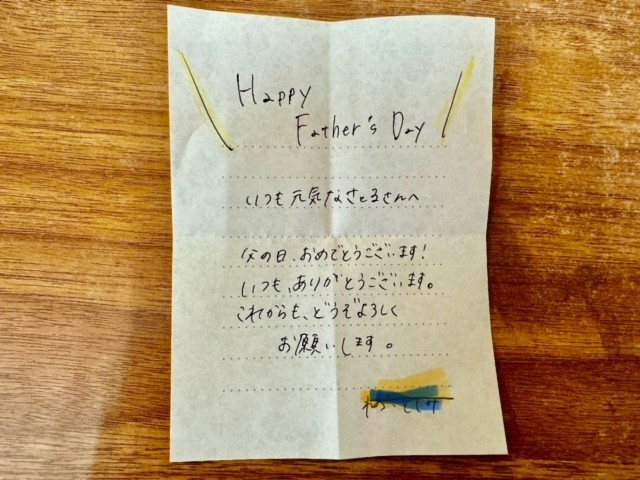 Happy
Father's Day
いつも元気なさとるさんへ
父の日、おめでとうございます!
いつも、ありがとうございます。
これからも、どうぞよろしく
お願いします。